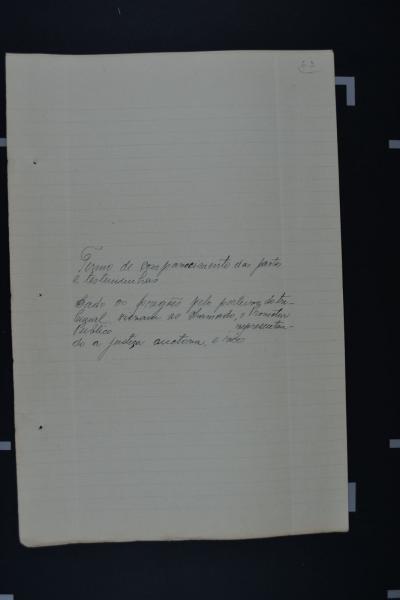 Termo de comparecimento das partes
e testemunhas
Dado os pregões pelo porteiro do tri-
bunal vieram ao chamado, o Promotor
Publico representan-
do a justiça auctora, o